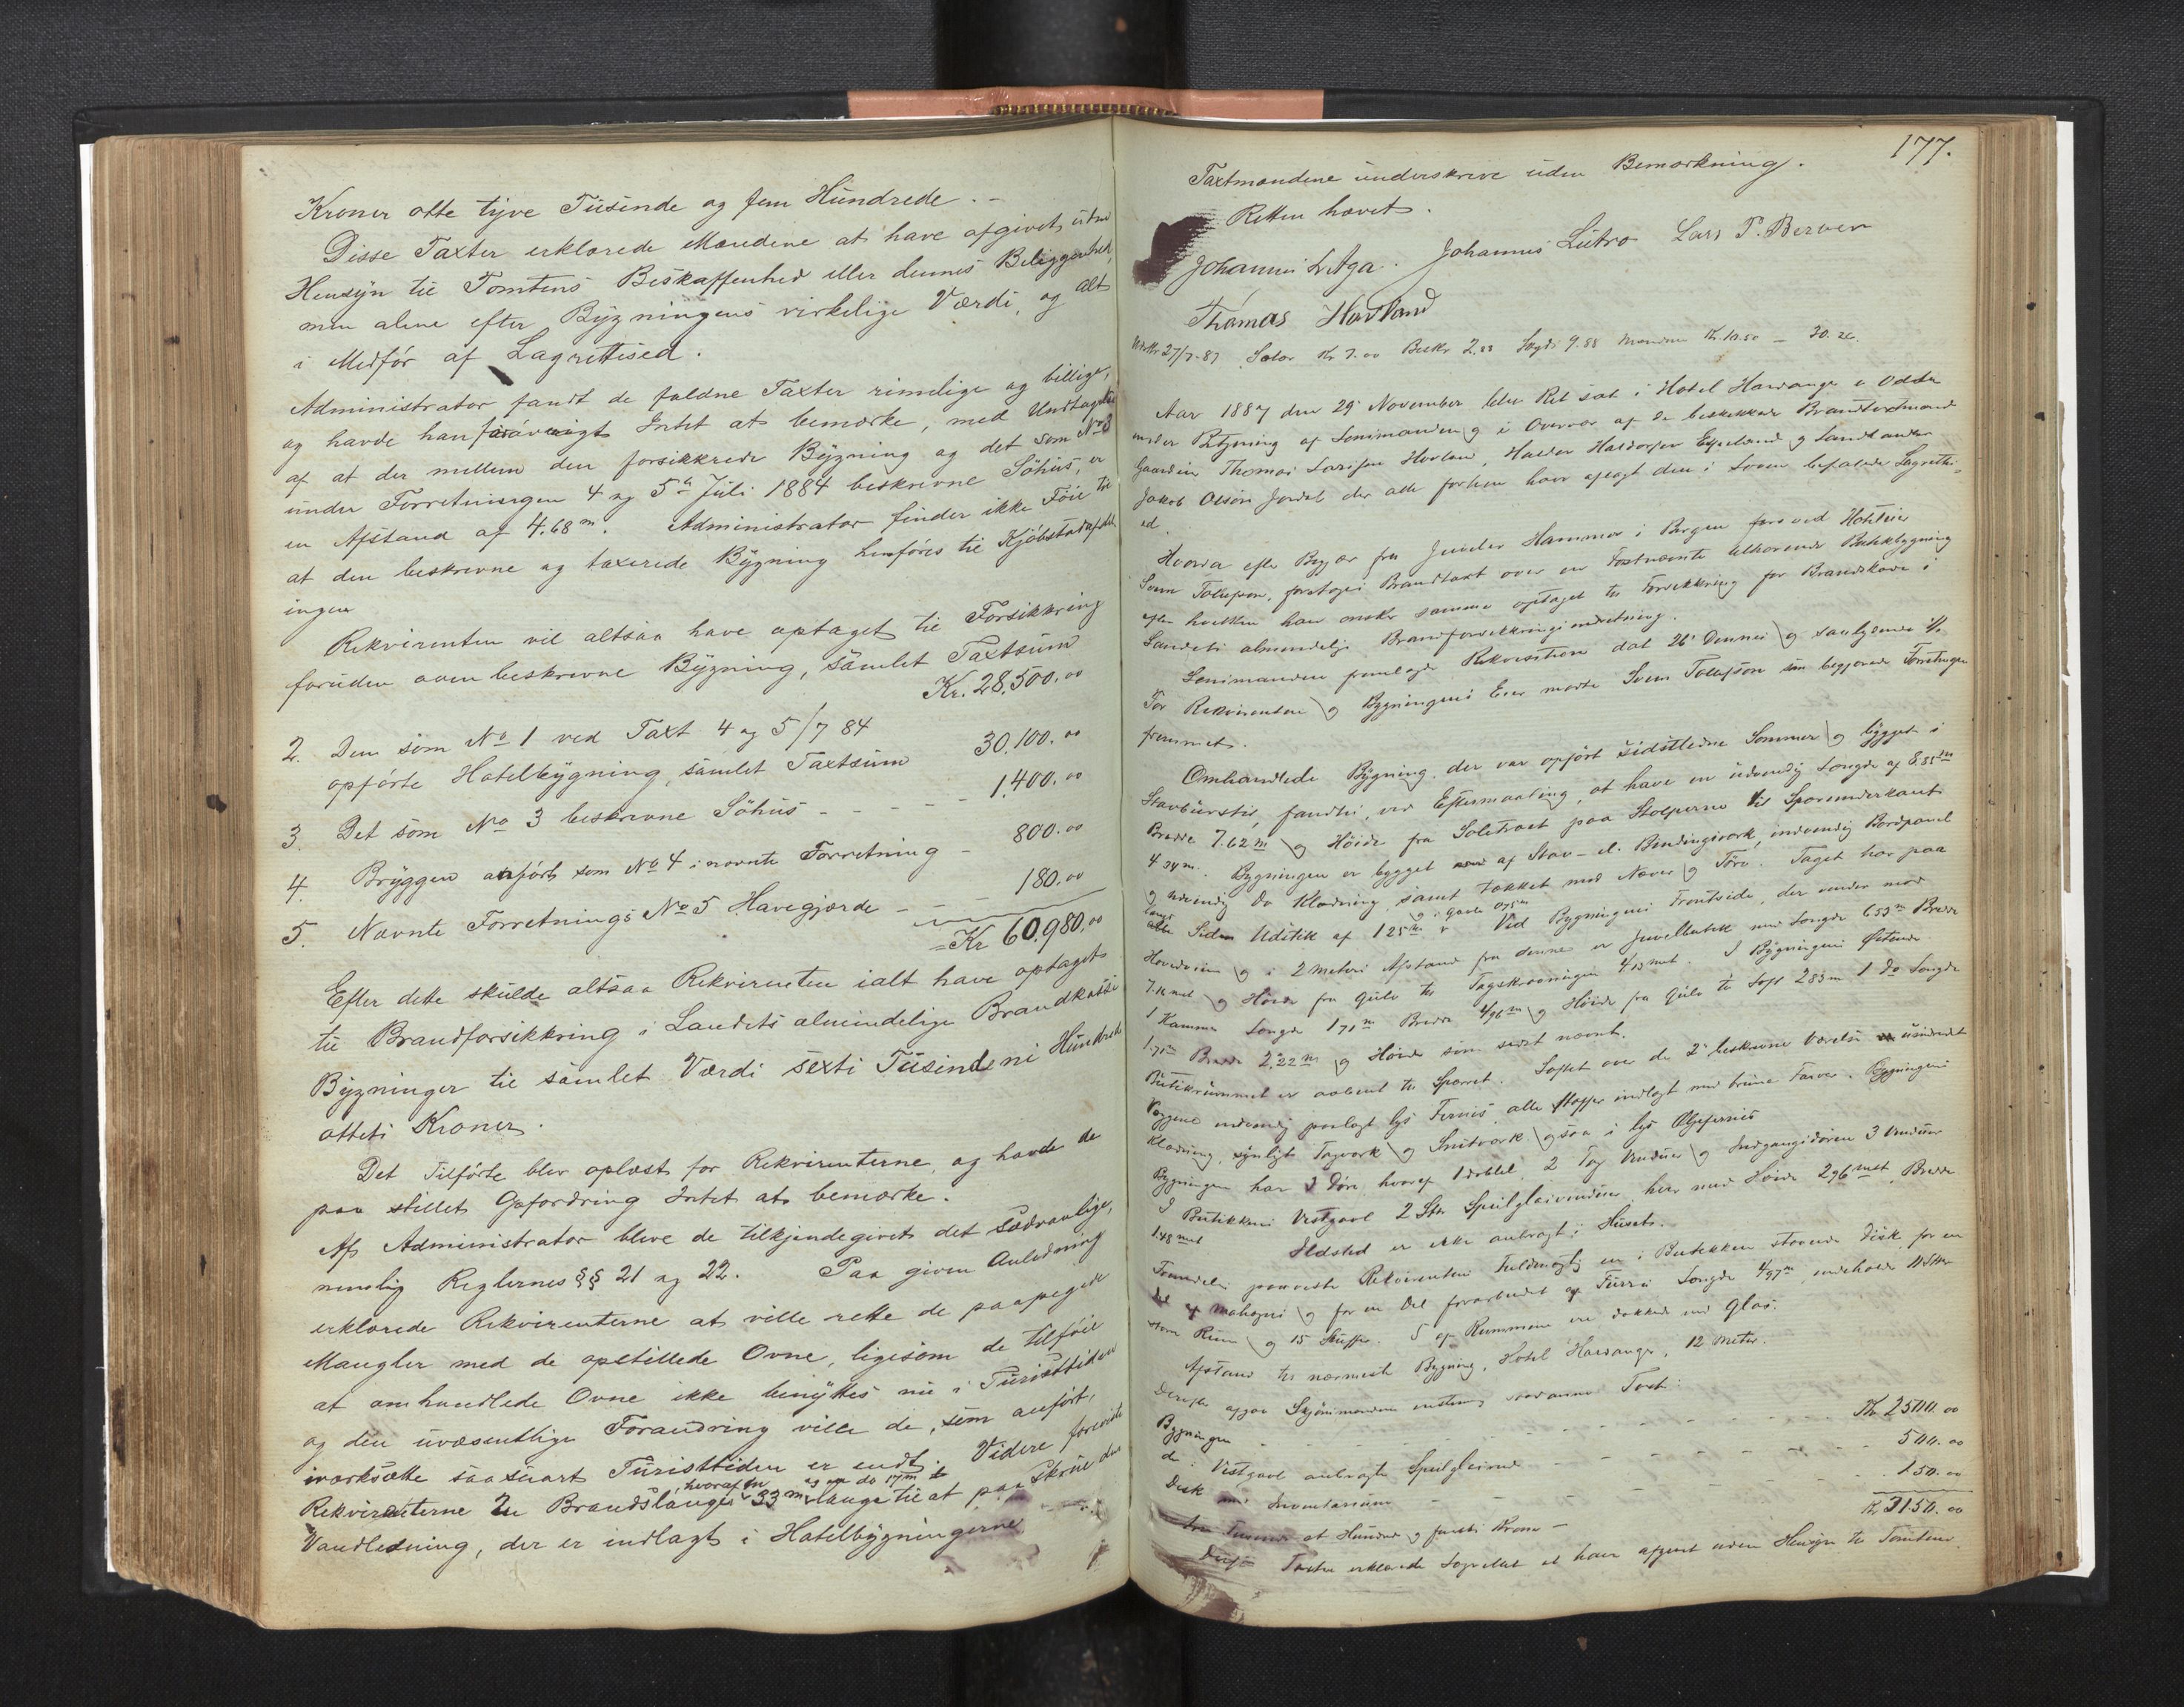 Kroner otte tyve Tusinde og fem Hundrede. -
Disse Taxter erklærede Mændene at have afgivet uden
Hensyn til Tomtens Beskaffenhed eller dennes Beliggenhed,
men alene efter Bygningens virkelige Værdi, og alt
i Medfør af Lagrettesed.
Administrator fandt de faldne Taxter rimelige og billige,
og havde han forøvrigt Intet at bemærke, med Undtagelse
af at der mellem den forsikkrede Bygning og det som No 3
under Forretningen 4 og 5te Juli 1884 beskrevne Söhus, er
en Afstand af 4.68 m. Administrator finder ikke Föie til
at den beskrevne og taxerede Bygning henföres til Kjöbstadafdel
ingen
Rekvirenten vil altsaa have optaget til Forsikkring
foruden oven beskrevne Bygning, samlet Taxtsum
Kr. 28,500.00
2. Den som No 1 ved Taxt 4 og 5/7 84
opförte Hotelbygning, samlet Taxtsum 30.100.00
3. Det som No 3 beskrevne Söhus - - - - - 1,400.00
4. Bryggen anfört som No 4 i nævnte Forretning - 800.00
5. Nævnte Forretnings No 5 Havegjærde - - - 180.00
= Kr 60,980,00
Efter dette skulde altsaa Rekvirenten ialt have optaget
til Brandforsikkring i Landets almindelige Brandkasse
Bygninger til samlet Værdi sexti Tusinde ni Hundrede
otteti Kroner.
Det Tilförte blev oplæst for Rekvirenterne, og havde de
paa stillet Opfordring Intet at bemærke.
Af Administrator bleve de tilkjendegivet det sædvanlige,
nemlig Reglernes §§ 21 og 22. Paa given Anledning
erklærede Rekvirenterne at ville rette de paapegede
Mangler med de opstillede Ovne, ligesom de tilföiede
at omhandlede Ovne ikke benyttes nu i Turisttiden
og den uvæsentlige Forandring ville de, som anfört,
iværksætte saasnart Turisttiden er endt. Videre foreviste
hvoraf en og en do 17 m
Rekvirenterne 2 Brandslanger 33 m lange til at paa Skrue den
Vandledning, der er indlagt i Hotelbygningerne
177.
Taxtmændene underskrive uden Bemærkning.
Retten hævet.
Johannes L Aga. Johannes Lutro Lars P. Berven
Thomas Hovland
27/7-87 Salær Kr 7.00 Beskr 2.
Aar 1887 den 29 November blev Ret sat i Hotel Hardanger i Odda
under Betjening af Lensmanden og i Overvær af de beskikkede Brandtaxtmænd
Gaardm Thomas Larssen Hovland, Halder Haldorsen Eppeland og Landhandler
Jakob Olsön Jordal der alle forhen have aflagt den i Loven befalede Lagrettes-
ed.
Hvorda efter Begjær fra Juveler Hammer i Bergen foro ved Hoteleier
Svend Tollefsen, foretoges Brandtaxt over en Förstnævnte tilhörende Butikbygning
efter hvilken han önsker samme optaget til Forsikkring for Brandskade i
Landets almindelige Brandforsikkringsindretning.
Lensmanden fremlagde Rekvisition dat 26 Dennes og saalydende
For Rekvirenten og Bygningens Eier mødte Svend Tollefsen som begjærede Forretningen
fremmet.
Omhandlede Bygning, der var opfört sidstledne Sommer og bygget i
fandtes, ved Eftermaaling, at have en udvendig Længde af 8.85 m
Bredde 7.62 m og Höide fra Soletræet paa Stolperne til Sparunderkant
4.34 m. Bygningen er bygget af Stav- el. Bindingsværk, indvendig Bordpanel
og udvendig Do Klædning, samt tækket med Næver og Törv. Taget har paa
og i Gavle 0.75 m
langs Siden Udstik af 1.25 m. Ved Bygningens Frontside, der vender mod
Hovedveien og i 2 Meters Afstand fra denne er Juvelbutik med Længde 6.53 m Bredde
7.12 met og Höide fra Gulv til Tagskraaningen 4.13 met. I Bygningens Östende
1 Kammer Længde 1.71 m Bredde 4.96 m og Höide fra Gulv til Loft 2.83 m 1 Do Længde
1.71 m Bredde 2.22 m og Höide som sidst nævnt.
Butikrummet er aabent til Sperret. Loftet over de 2de beskrevne Værelser
Væggene indvendig paalagt lys Fernis, alle Stoffer indlagt med brune Farver. Bygningens
Klædning, synligt Tagværk og Snitværk ogsaa i lys Oljefernis
Bygningen har 3 Döre hvoraf 1 dobbel, 2 Fag Vinduer og Indgangsdören 3 Vinduer
I Butikkens Vestgavl 2 Stkr Speilglasvinduer, hver med Höide 2.96 met, Bredde
1.48 met Ildsted er ikke anbragt i Huset.
Fremdeles paaviste Rekvirentens Fuldmægtig en i Butikken staaende Disk, for en
Del af Mahogni og for en Del forarbeidet af Furru Længde 4.97 m indehold
store Rum og 15 Skuffer. 5 af Rummene ere dækkede med Glas.
Afstand til nærmeste Bygning, Hotel Hardanger, 12 Meter.
Derefter afgav Skjönsmændene enstemmig saadanne Taxt:
Bygningen - - - - - - - - Kr 2500.00
de i Vestgavl anbragte Speilglasvinduer - - - - - 500.00
Disk med Inventarium - - - - - - 150.00
Kr 3150.00
tre Tusinde et Hundrede og femti Kroner -
Disse Taxter erklærede Lagrettet at have afgivet uden Hensyn til Tomtens